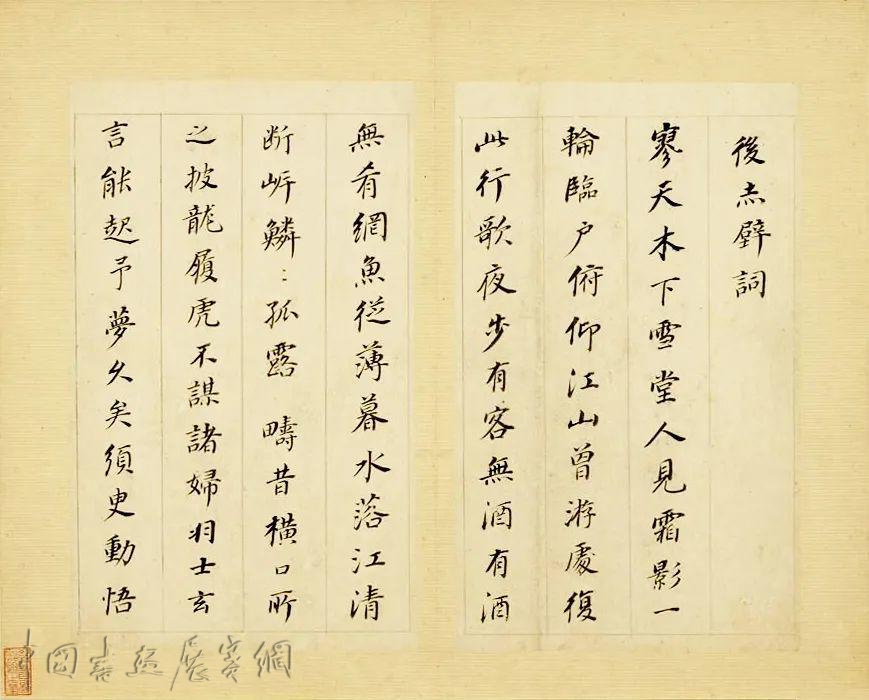 後赤壁詞
寥天木下雪堂人見霜影一
輪臨户俯仰江山曾游處復
此行歌夜步有客無酒有酒
無肴網魚從薄暮水落江清
断岸鱗：孤露 疇昔横口所
之披龍履虎不謀諸婦羽士玄
言能起予夢久矣須臾動悟
中国書画展賽網